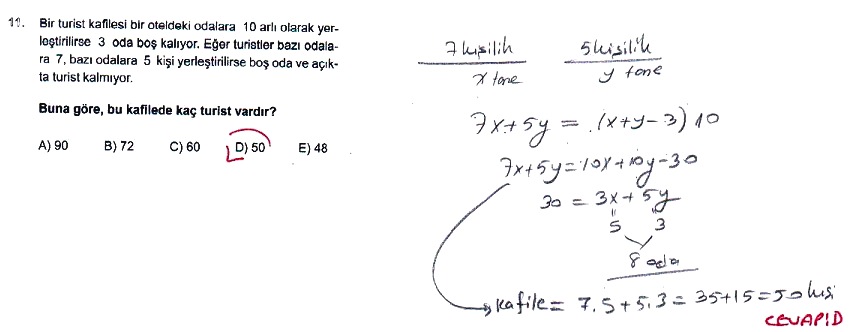 11. Bir turist kafilesi bir oteldeki odalara 10 arlı olarak yer-
leştirilirse 3 oda boş kalıyor. Eğer turistler bazı odala-
ra 7, bazı odalara 5 kişi yerleştirilirse boş oda ve açık-
ta turist kalmıyor.
Buna göre, bu kafilede kaç turist vardır?
A) 90 B) 72 C) 60 D) 50 E) 48
7 kişilik 5 kişilik
x tane y tane
7x+5y = (x+y-3) 10
7x+5y=10x+10y-30
30 = 3x+5y
5 3
8 oda
kafile = 7.5+5.3 = 35+15=50 kişi
CEVAP:D